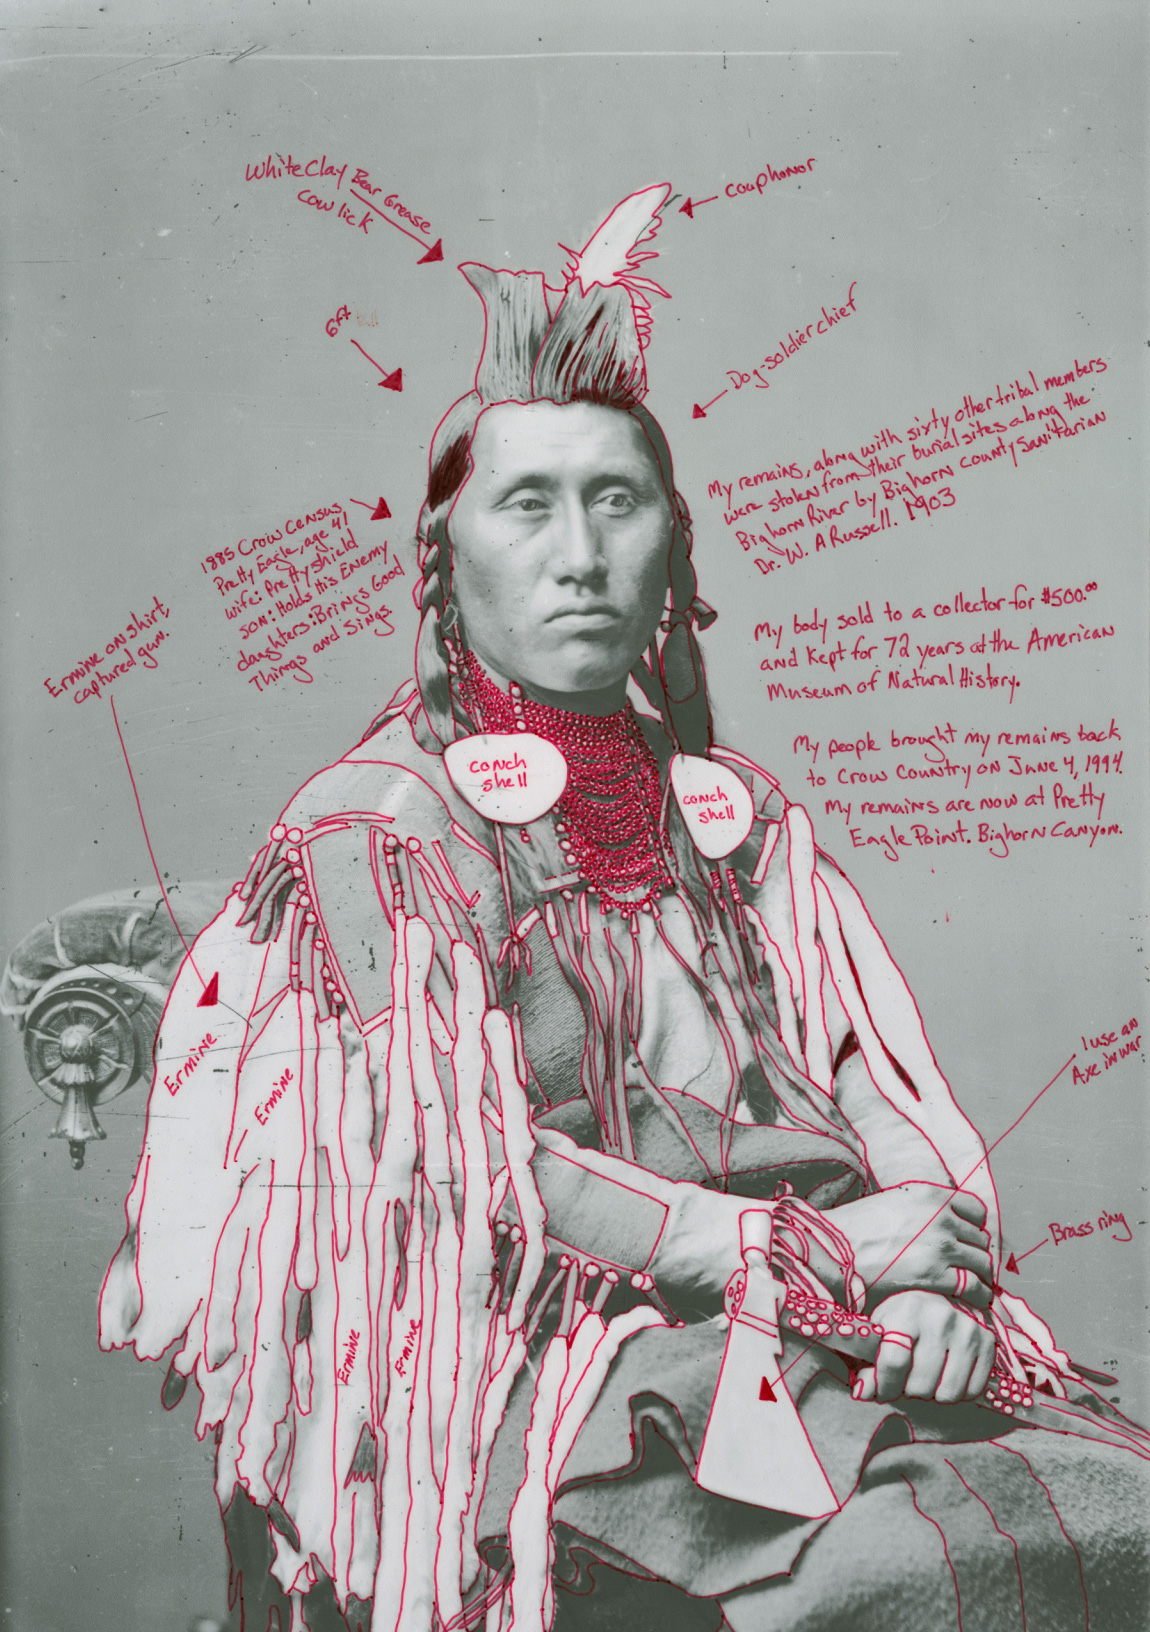 White Clay Bear Grease
cow lick
coup honor
6ft
Dog-soldier chief
My remains, along with sixty other tribal members
were stolen from their burial sites along the
Bighorn River by Bighorn County Sanitarian
Dr. W. A Russell. 1903
1885 Crow Census,
Pretty Eagle, age 41
wife: Pretty shield
son: Holds His Enemy
daughters: Brings Good
Things and Sings.
Ermine on shirt,
captured gun.
My body sold to a collector for $500.00
and kept for 72 years at the American
Museum of Natural History.
My people brought my remains back
to Crow Country on June 4, 1994.
My remains are now at Pretty
Eagle Point. Bighorn Canyon.
conch
shell
conch
shell
Ermine
Ermine
I use an
Axe in war
Brass ring
Ermine
Ermine